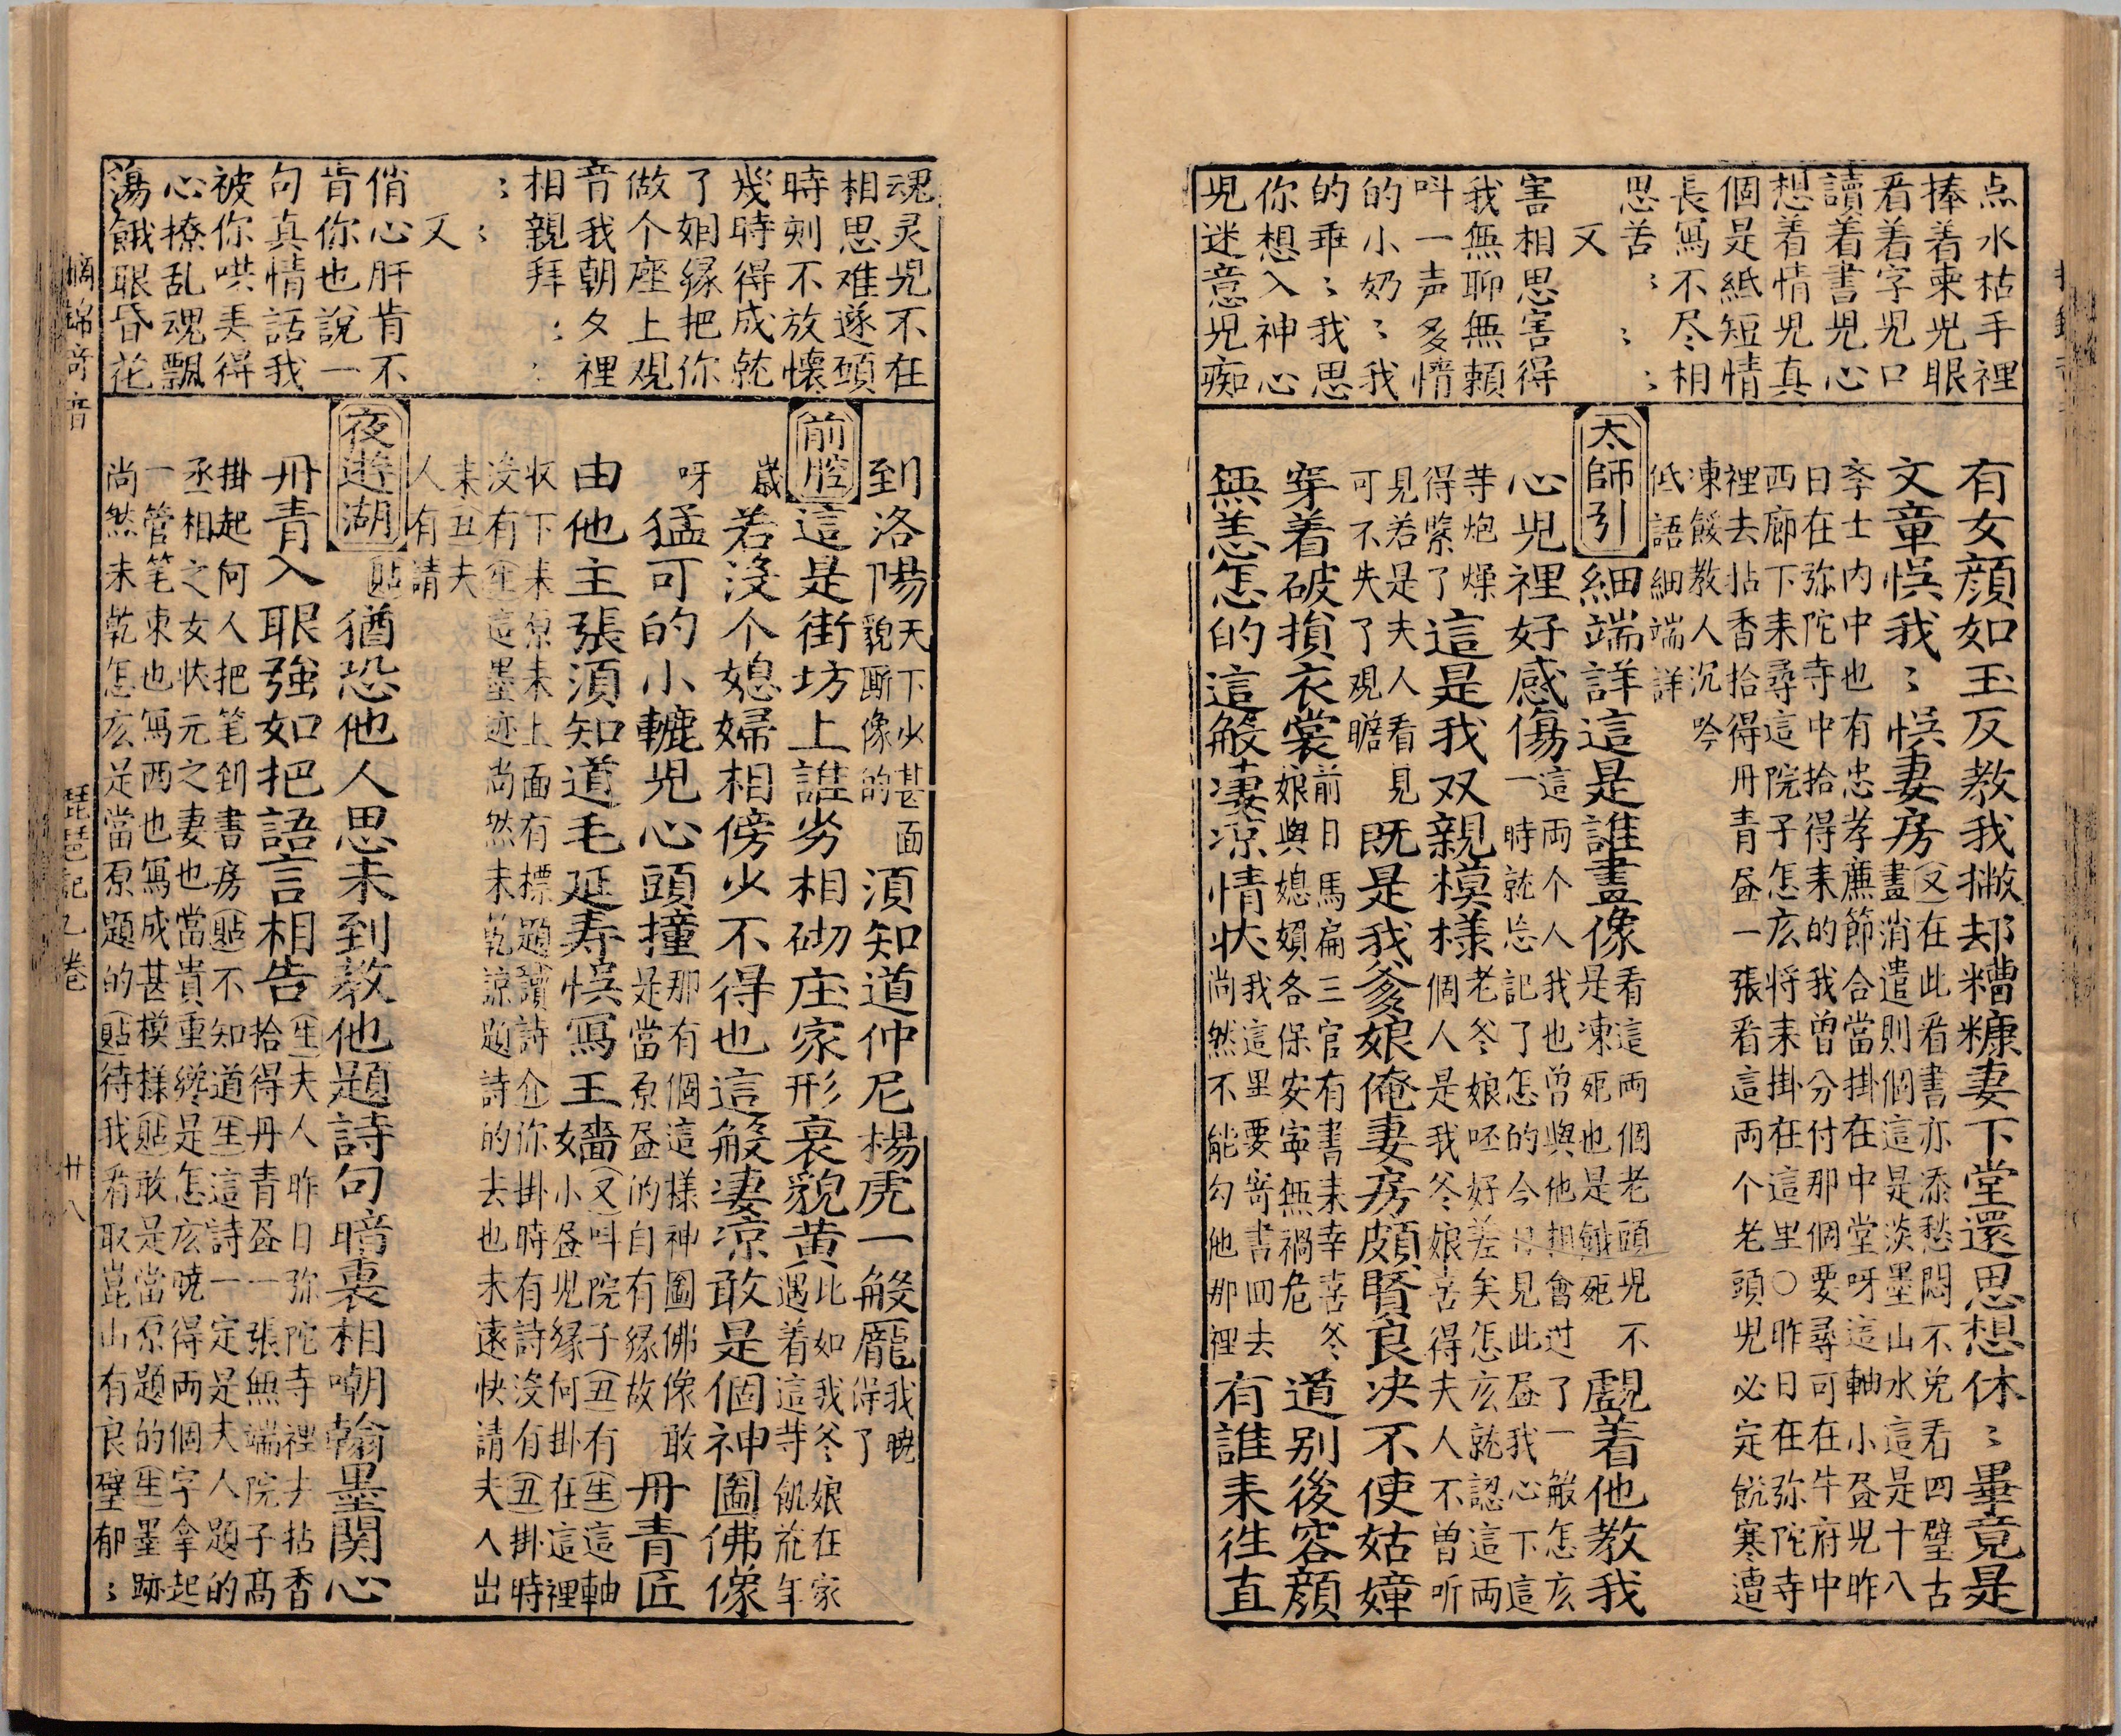 点水枯手裡
捧着柬児眼
看着字児口
讀着書児心
想着情児真
個是紙短情
長寫不尽相
思苦ミミミ
又
害相思害得
我無聊無頼
呌一声多情
的小奶ミ我
的乖ミ我思
你想入神心
児迷意児痴
有女顔如玉反教我撇却糟糠妻下堂還思想休ミ畢竟是
文章悮我ミ悮妻房
(又)在此看書亦添愁悶不免看四壁古
畫消遣則個這是淡墨山水這是十八
斈士内中也有忠孝廉節合當掛在中堂呀這軸小昼児昨
日在弥陀寺中拾得耒的我曽分付那個要尋可在牛府中
西廊下耒尋這院子怎庅将耒掛在這里○昨日在弥陀寺
裡去拈香拾得丹青昼一張看這両个老頭児必定飢寒遭
凍餒教人沉吟
低語細端詳
太師引
細端詳這是誰畫像
看這両個老頭児不
是凍死也是餓死
覷着他教我
心児裡好感傷
這両个人我也曽與他相會过了一般怎庅
一時就忘記了怎的今日見此昼我心下這
䓁炮燥
得緊了
這是我双親模樣
老爹娘呸好差矣怎庅就認這両
個人是我爹娘喜得夫人不曽听
見若是夫人看見
可不失了观瞻
既是我爹娘俺妻房頗賢良决不使姑嫜
穿着破損衣裳
前日馬扁三官有書耒幸喜爹
娘與媳嬪各保安寧無禍危
道别後容顔
無恙怎的這般凄凉情状
我這里要寄書回去
尚然不能勾他那裡
有誰耒徃直
魂灵児不在
相思难遂頭
時刻不放懐
幾時得成就
了姻緣把你
做个座上观
音我朝夕裡
相親拜ミミ
ミミ
又
俏心肝肯不
肯你也說一
句真情話我
被你哄弄得
心撩乱魂飄
蕩餓眼昏花
到洛陽
天下火甚面
貌厮像的
須知道仲尼楊虎一般龎
我暁
得了
前腔
這是街坊上誰劣相砌庄家形衰貌黄
此如我爹娘在家
遇着這䓁飢荒年
歲
若没个媳婦相傍少不得也這般凄凉敢是個神圖佛像
呀
猛可的小轆児心頭撞
那有個這樣神圖佛像敢
是當原昼的自有緣故
丹青匠
由他主張須知道毛延寿悮寫王嬙
(又)呌院子(丑)有(生)這軸
小昼児緣何掛在這裡
収下耒原耒上面有標題(讀詩介)你掛時有詩没有(丑)掛時
没有(生)這墨迹尚然未乾諒題詩的去也未遠快請夫人出
耒(丑)夫
人有請
夜遊湖
(貼)猶恐他人思未到教他題詩句暗裏相嘲翰墨関心
丹青入眼強如把語言相告
(生)夫人昨日弥陀寺裡去拈香
拾得丹青昼一張無端院子高
掛起何人把笔到書房(貼)不知道(生)這詩一定是夫人題的
丞相之女状元之妻也當貴重縂是怎庅暁得両個字拿起
一管笔東也寫西也寫成甚模樣(貼)敢是當原題的(生)墨跡
尚然未乾怎庅是當原題的(貼)待我看取崑山有良璧郁ミ
摘錦奇音
琵琶記乙卷
卅八